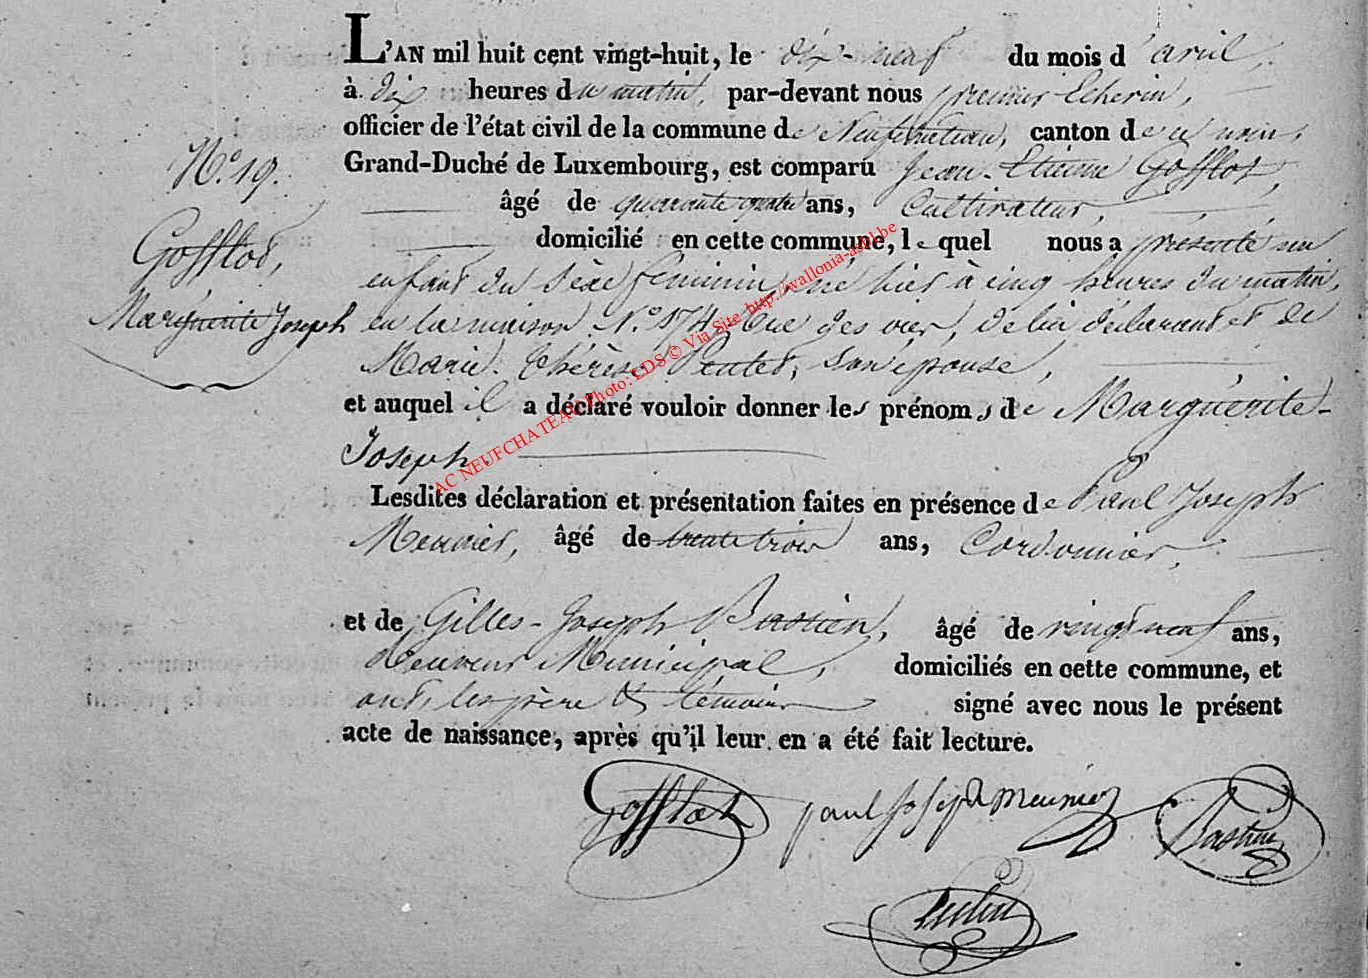 L'AN mil huit cent vingt-huit, le dix-neuf du mois d'avril,
à dix heures du matin, par-devant nous premier Echevin,
officier de l'état civil de la commune de Neufchateau, canton de ce nom,
N.o 19.
Grand-Duché de Luxembourg, est comparu Jean-Etienne Gofflot,
âgé de quarante quatre ans, Cultivateur,
Gofflot,
domicilié en cette commune, lequel nous a présenté un
enfant du sèxe féminin, né hier à cinq heures du matin,
Marguérite Joseph
en la maison N.o 174, Rue des , de lui déclarant et de
Marie Thérèse , son épouse,
et auquel il a déclaré vouloir donner les prénoms de Marguérite-
Joseph.
Lesdites déclaration et présentation faites en présence de Paul Joseph
Meunier, âgé de trente trois ans, Cordonnier,
et de Gilles-Joseph Bastien, âgé de vingt neuf ans,
Receveur Municipal, domiciliés en cette commune, et
ont, les père & témoins signé avec nous le présent
acte de naissance, après qu'il leur en a été fait lecture.
Gofflot paul joseph meunier Bastien
AC NEUFCHATEAU Photo: LDS © Via Site http://wallonia-asbl.be